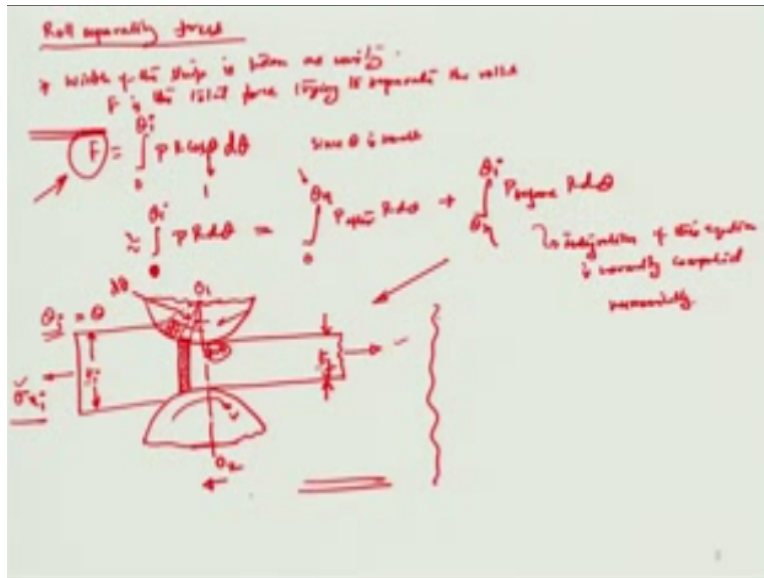 Roll separating force
* Width of the strip is taken as unity.
F is the total force trying to separate the rolls
F = ∫₀^θi p R cosθ dθ since θ is small
1
≅ ∫₀^θi p R dθ = ∫₀^θn P after R dθ + ∫θn^θi P before R dθ
↳ integration of this equation
is normally computed
numerically.
dθ O₁
θi = θ
ti
σxi
O₂